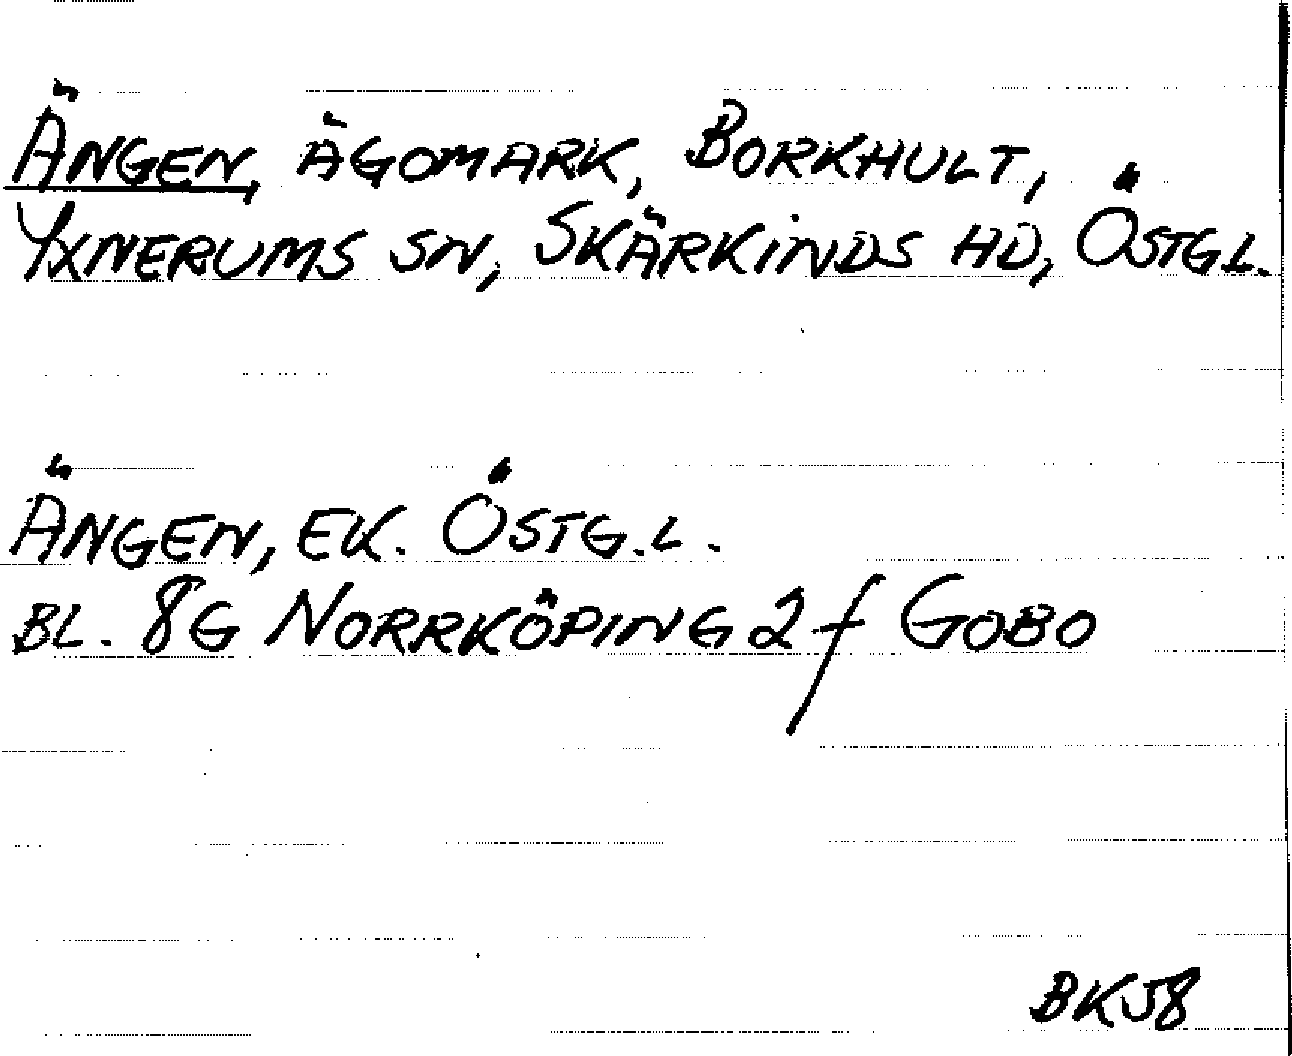 Ängen, ägomark, Borkhult,
Yxnerums sn, Skärkinds hd, Östg.l.
Ängen, ek. Östg.l.
bl. 8G Norrköping 2 f Gobo
BK58